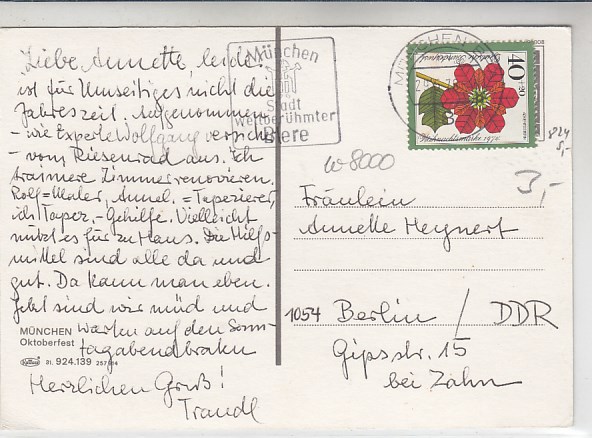 Liebe Annette, leider
ist für Umseitiges nicht die
Jahreszeit. Aufgenommen
- wie Experte Wolfgang versichert
- vom Riesenrad aus. Ich
träumere Zimmerrenovieren.
Rolf = Maler, Annel. = Tapezierer,
ich Tapez.-Gehilfe. Vielleicht
nützt es für zu Haus. Die Hilfs-
mittel sind alle da und
gut. Da kann man eben.
Jetzt sind wir müd und
warten auf den Sams-
tagabendbraten
Herzlichen Gruß!
Traudl
MÜNCHEN
Oktoberfest
31. 924.139
München
Stadt
weltberühmter
Biere
MÜNCHEN
Deutsche Bundespost
40+20
Weihnachtsmarke 1974
824
5,-
W-8000
3,-
Fräulein
Annette Heynert
1054 Berlin / DDR
Gipsstr. 15
bei Zahn